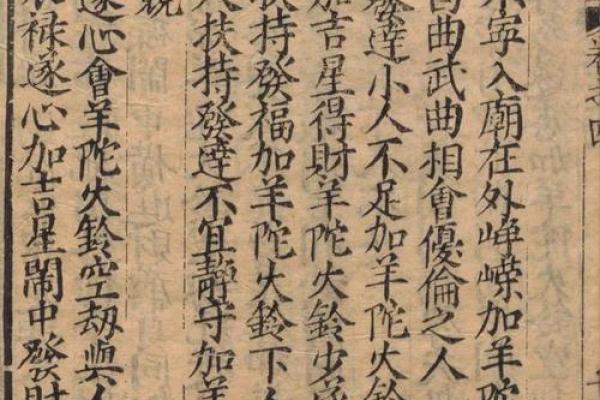 卷之四
寧入廟在外崢嶸加羊陀
曲武曲相會優倫之人
發達小人不足加羊陀火鈴
加吉星得財羊陀火鈴少
扶持發福加羊陀火鈴下人
人扶持發達不宜靜守加羊
遂心會羊陀火鈴空劫與人
祿遂心加吉星鬧中發財